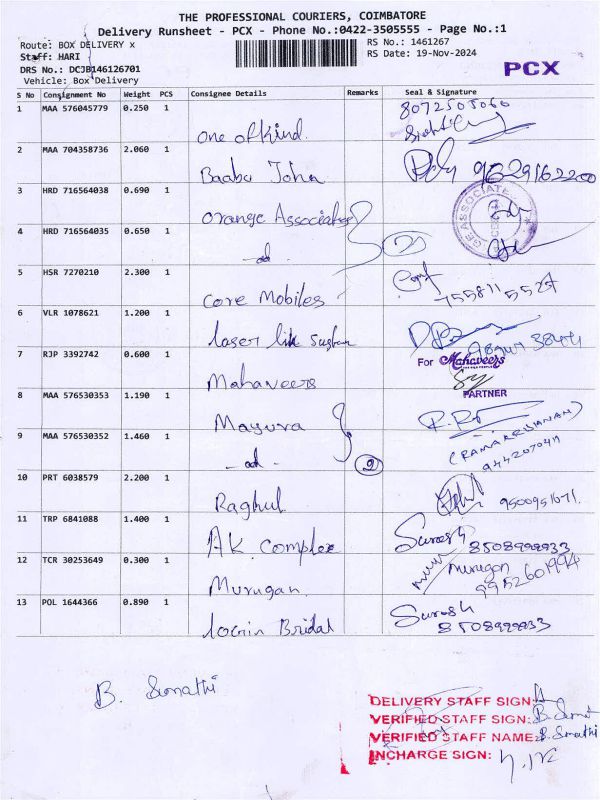 THE PROFESSIONAL COURIERS, COIMBATORE
Delivery Runsheet - PCX - Phone No.:0422-3505555 - Page No.:1
Route: BOX DELIVERY x
RS No.: 1461267
Staff: HARI
RS Date: 19-Nov-2024
DRS No.: DCJB146126701
PCX
Vehicle: Box Delivery
S No Consignment No Weight PCS Consignee Details Remarks Seal & Signature
1 MAA 576045779 0.250 1 One of Kind. 8072505060
2 MAA 704358736 2.060 1 Baabu John
3 HRD 716564038 0.690 1 Orange Associates
4 HRD 716564035 0.650 1 -do- 2
5 HSR 7270210 2.300 1 Core Mobiles
6 VLR 1078621 1.200 1 laser
7 RJP 3392742 0.600 1 Mahaveers For Mahaveers
PARTNER
8 MAA 576530353 1.190 1 Mayura
(RAMAKRISHNAN)
9 MAA 576530352 1.460 1 -do- 2
10 PRT 6038579 2.200 1 Raghul
11 TRP 6841088 1.400 1 AK Complex Suresh
8508999933
12 TCR 30253649 0.300 1 Murugan Murugan
9952601994
13 POL 1644366 0.890 1 Bridal Suresh
8508999933
B. Sumathi
DELIVERY STAFF SIGN:
VERIFIED STAFF SIGN:
VERIFIED STAFF NAME: B. Sumathi
INCHARGE SIGN: